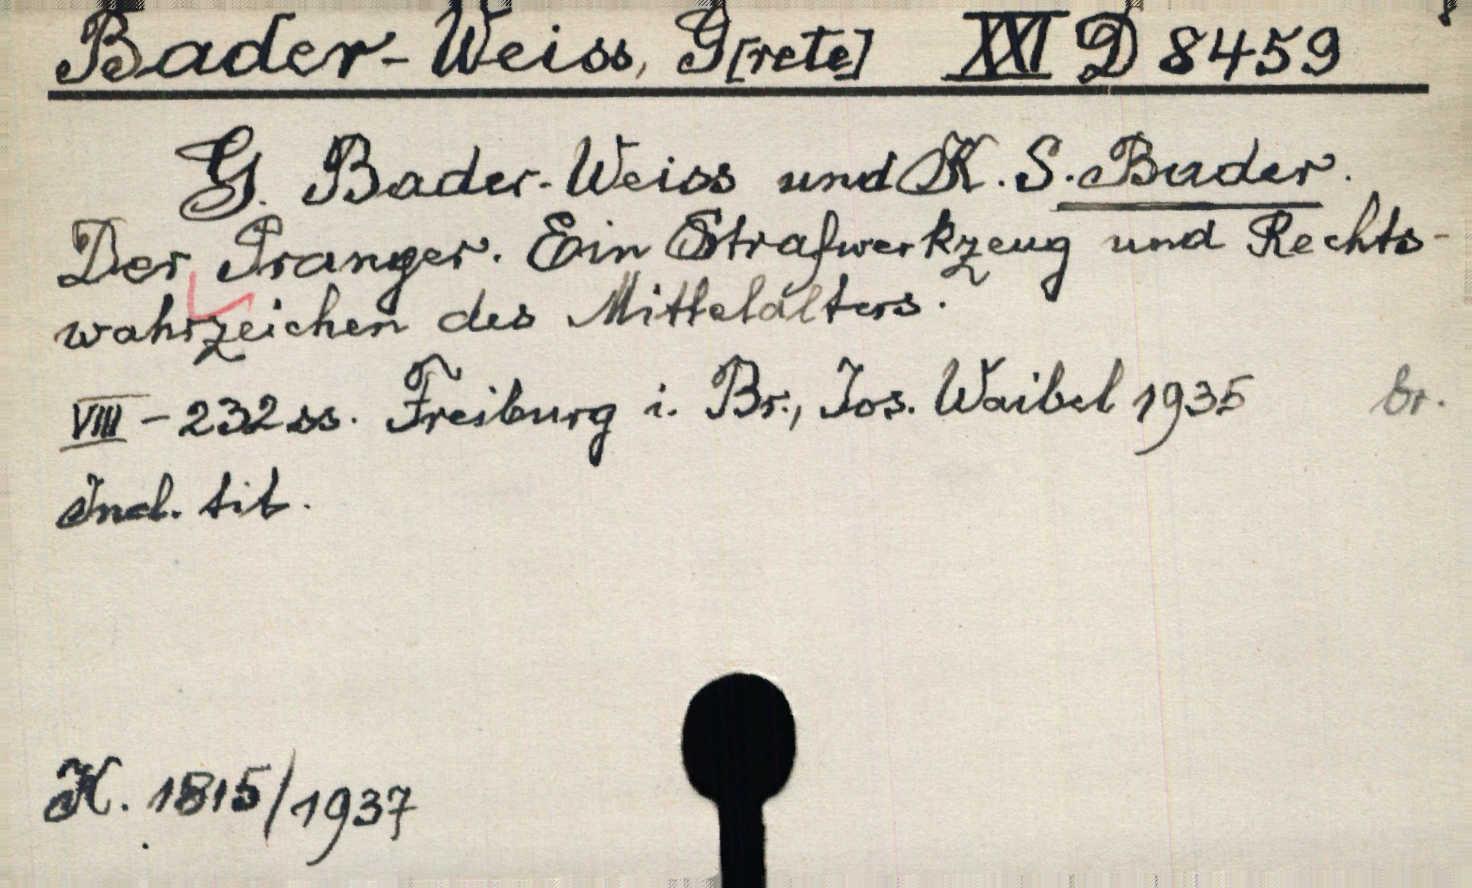 Bader-Weiss, G[rete] XXI D 8459
G. Bader-Weiss und K. S. Bader.
Der Pranger. Ein Strafwerkzeug und Rechts-
wahrzeichen des Mittelalters.
VIII - 232 ss. Freiburg i. Br., Jos. Waibel 1935 br.
Ind. tit.
K. 1815/1937